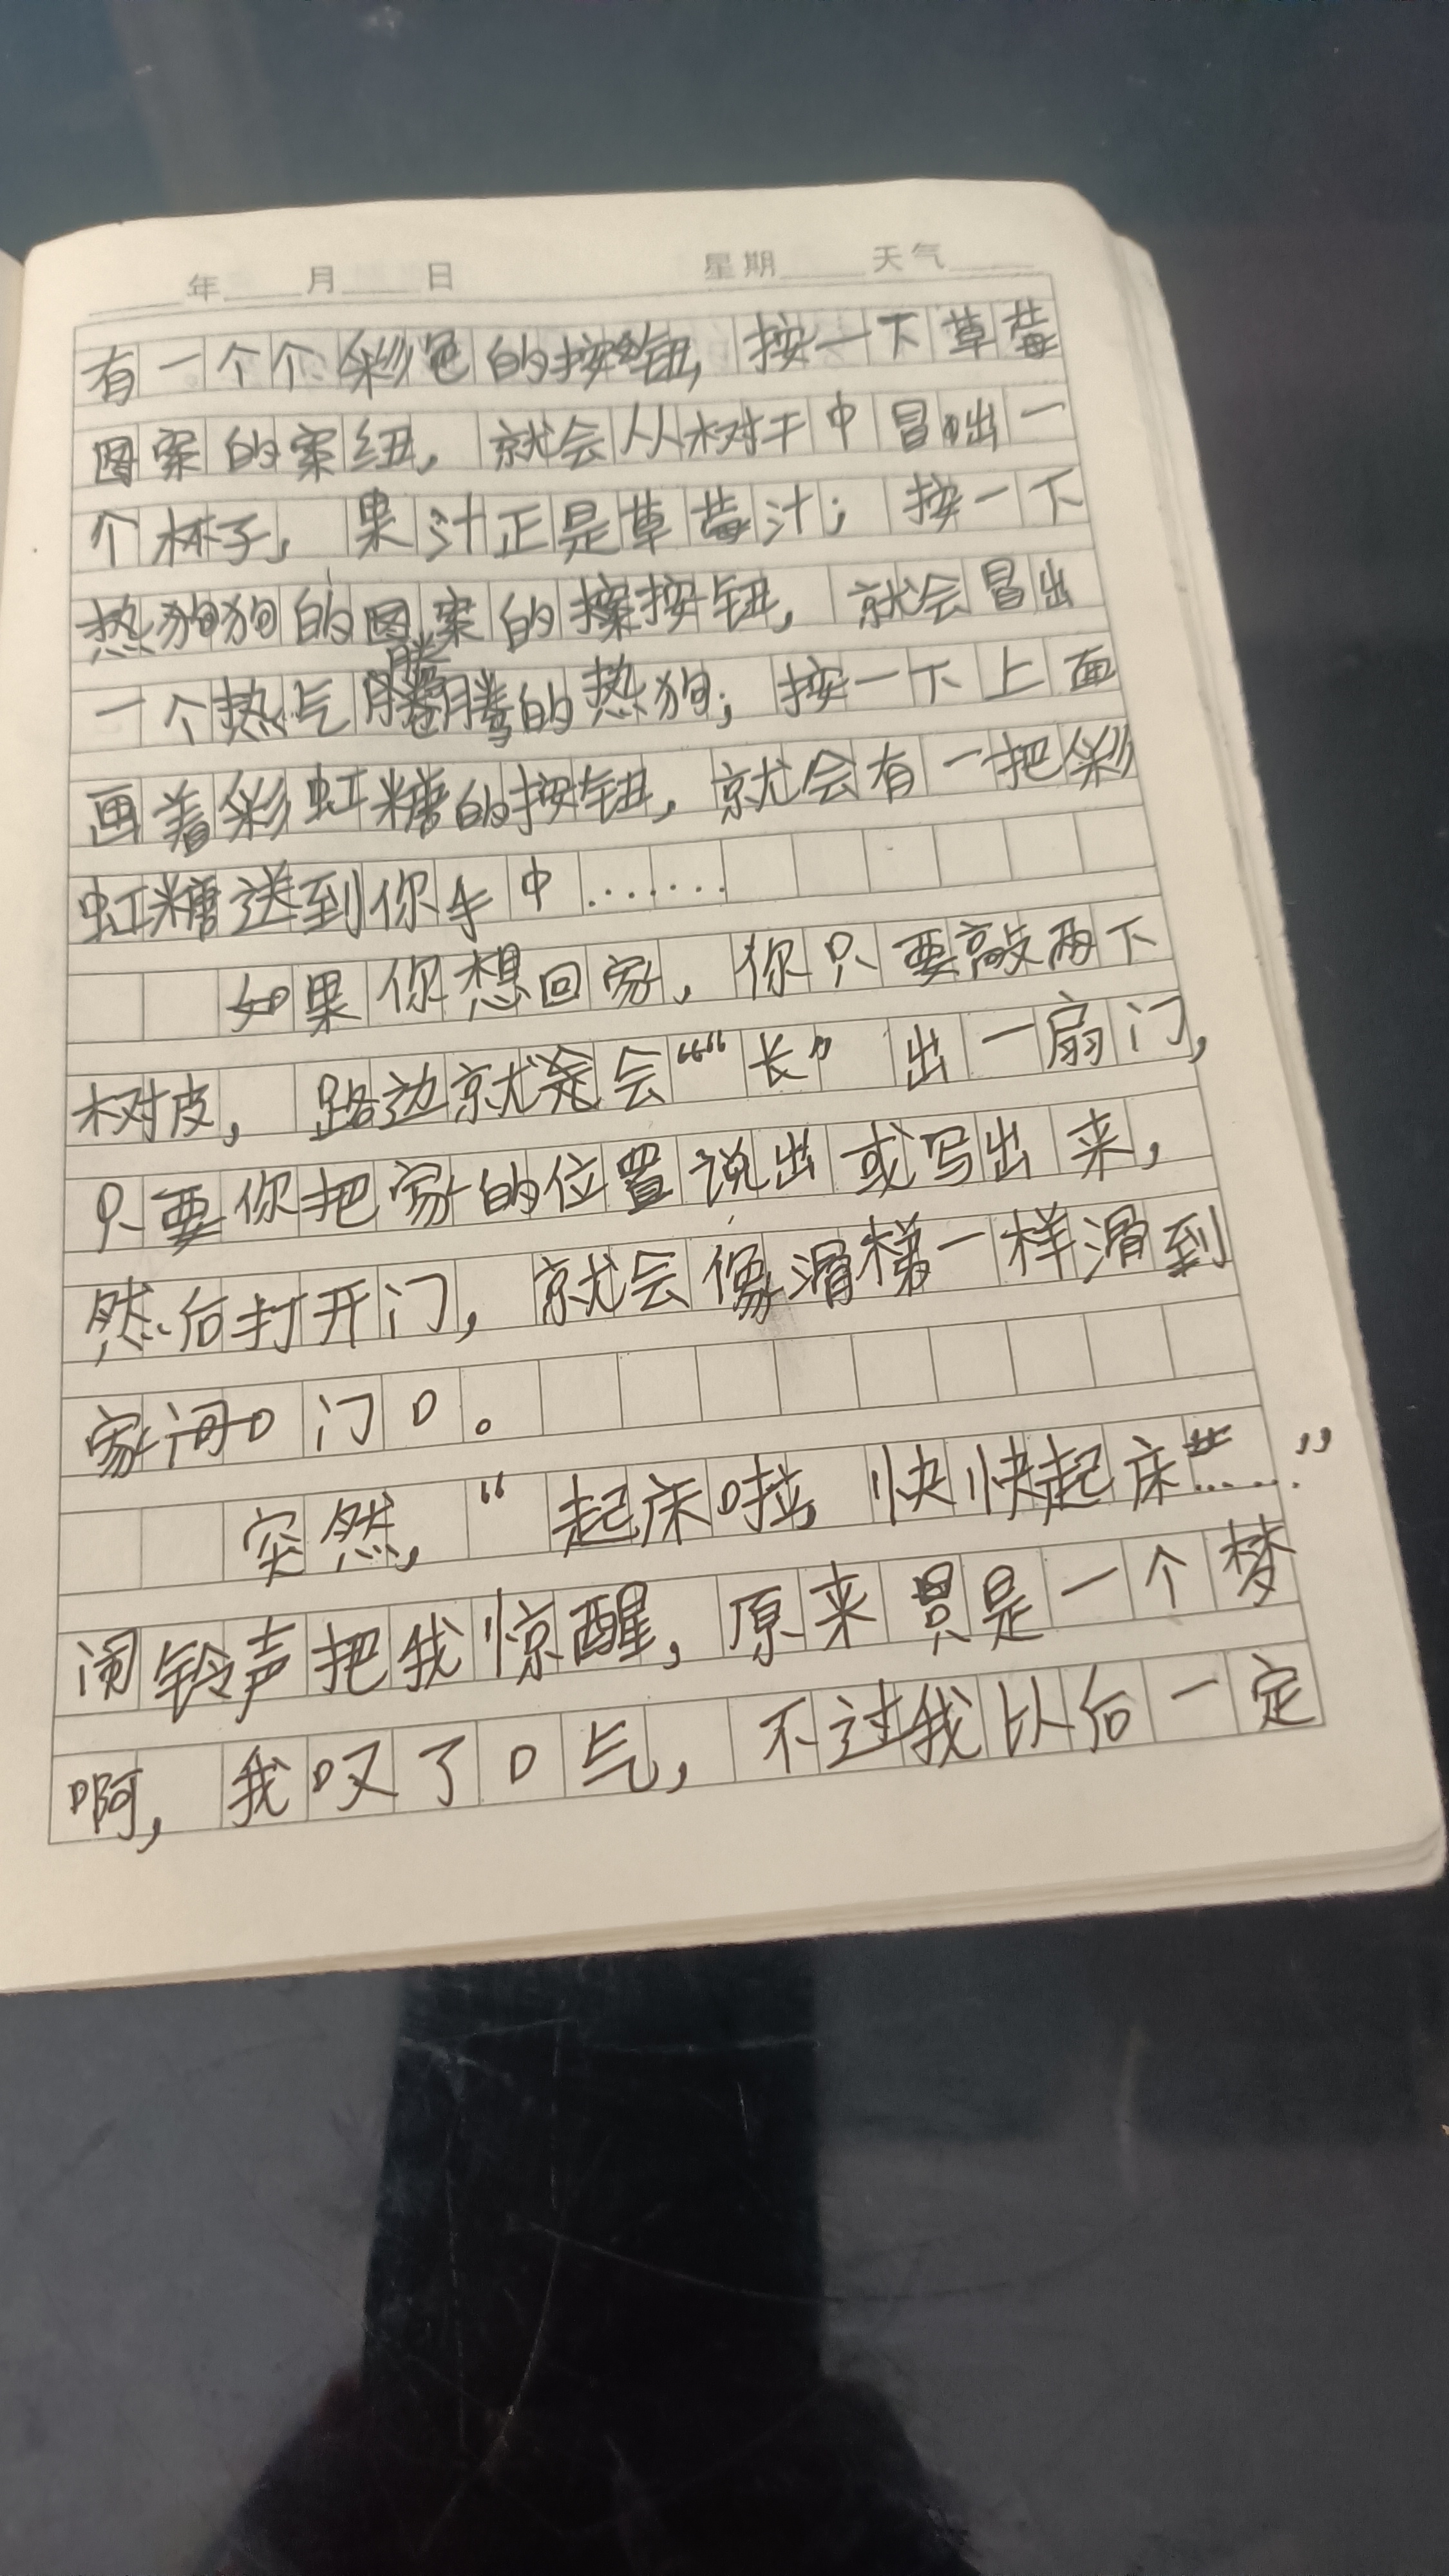 年 月 日 星期 天气
有一个个彩色的按钮，按一下草莓
图案的案纽，就会从树干中冒出一
个杯子，果汁正是草莓汁；按一下
热狗狗的图案的按钮，就会冒出
一个热气腾腾的热狗；按一下上面
画着彩虹糖的按钮，就会有一把彩
虹糖送到你手中……
如果你想回家，你只要敲两下
树皮，路边就会“长”出一扇门，
只要你把家的位置说出或写出来，
然后打开门，就会像滑梯一样滑到
家门口。
突然，“起床啦，快快起床……”
闹铃声把我惊醒，原来只是一个梦
啊，我叹了口气，不过我以后一定